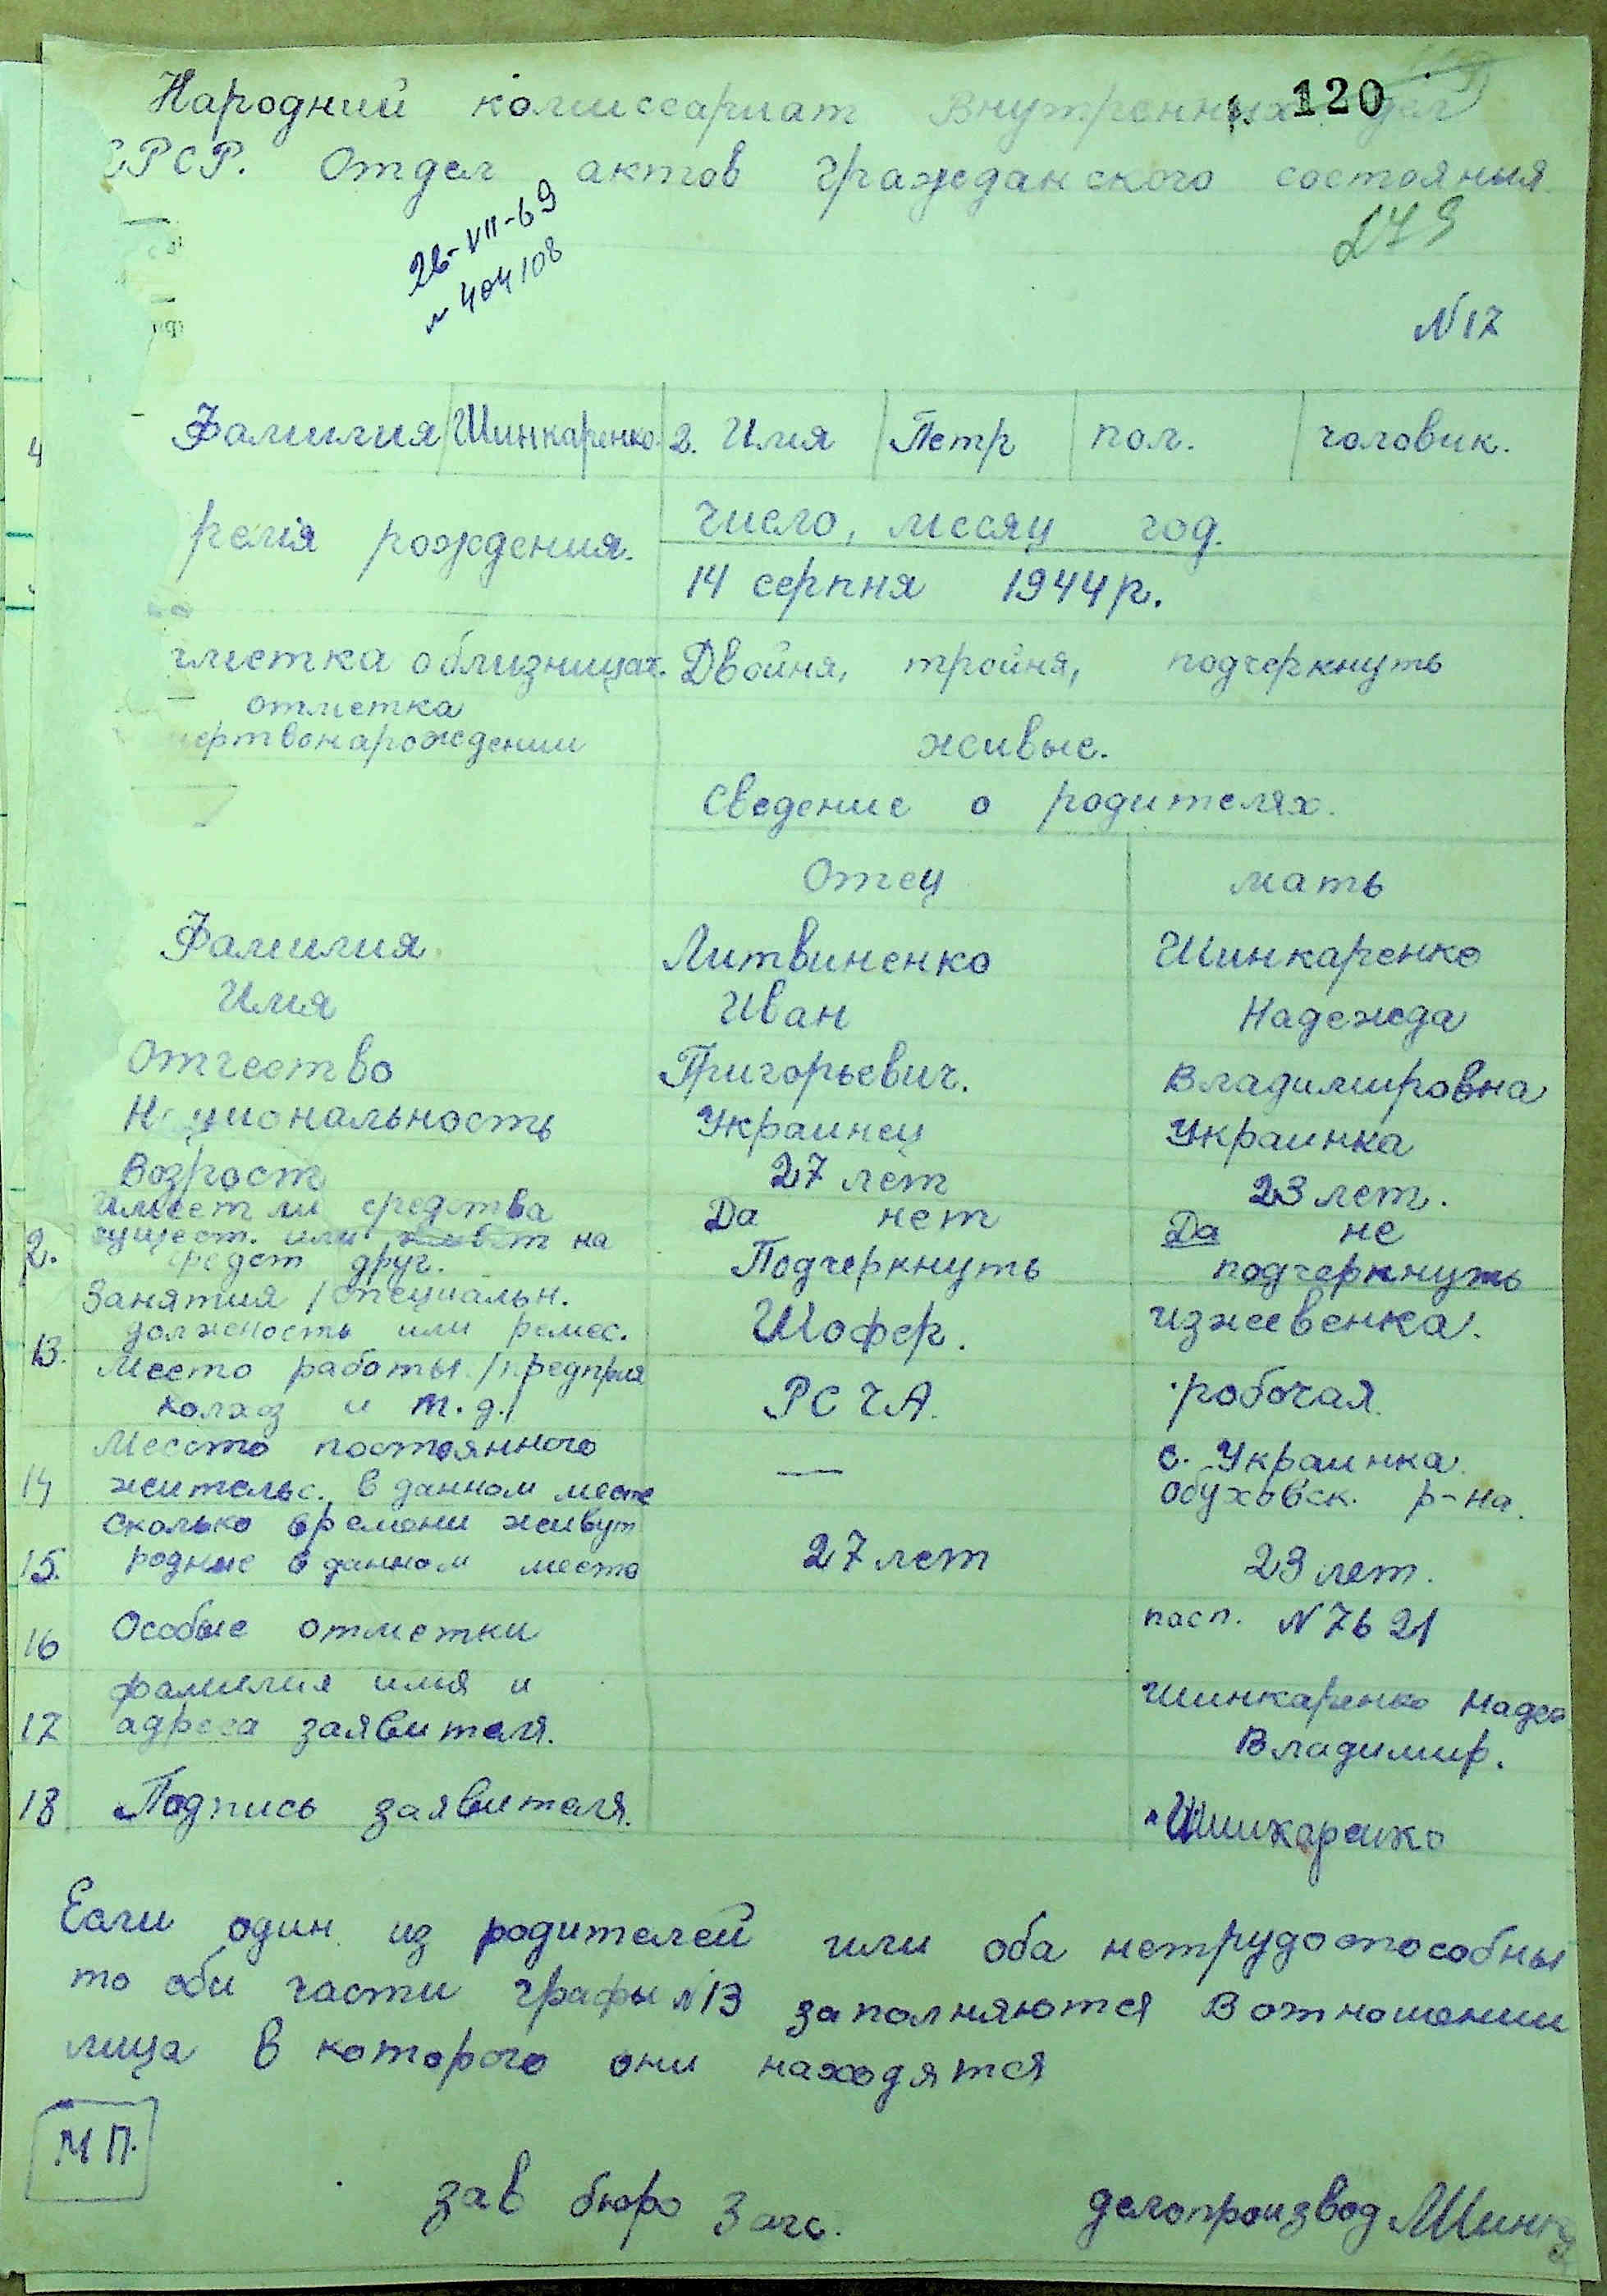 Народний комиссариат Внутренних дел 120
РСР. Отдел актов гражданского состояния
26-VII-69
№ 404108
279
N 17
Фамилия Шинкаренко 2. Имя Петр пол. чоловик.
ремя рождения. число, месяц год.
14 серпня 1944 р.
тметка облизницах. Двойня, тройня, подчеркнуть
отметка
мертвонарождении живые.
Сведение о родителях.
Отец мать
Фамилия Литвиненко Шинкаренко
Имя Иван Надежда
Отчество Григорьевич. Владимировна
Национальность Украинец Украинка
Возрост 27 лет 23 лет.
Имеет ли средства Да нет Да не
2. сущест. или живет на
средст друг. Подчеркнуть подчеркнуть
Занятия /специальн.
должность или ремес. Шофер. изжевенка.
13. Место работы /предприя
колхоз и т.д./ РСЧА. робочая.
Место постоянного — с. Украинка.
14 жительс. в данном месте Обуховск. р-на.
сколько времени живут
15. родные в данном место 27 лет 23 лет.
16 Особые отметки пасп. N 7621
фамилия имя и Шинкаренко Надеж
17 адреса заявителя. Владимир.
18 Подпись заявителя. Шинкаренко
Если один из родителей или оба нетрудоспособны
то оби части графы №13 заполняются в отношении
лица в которого они находятся
М П.
зав бюро Загс. делопроизвод